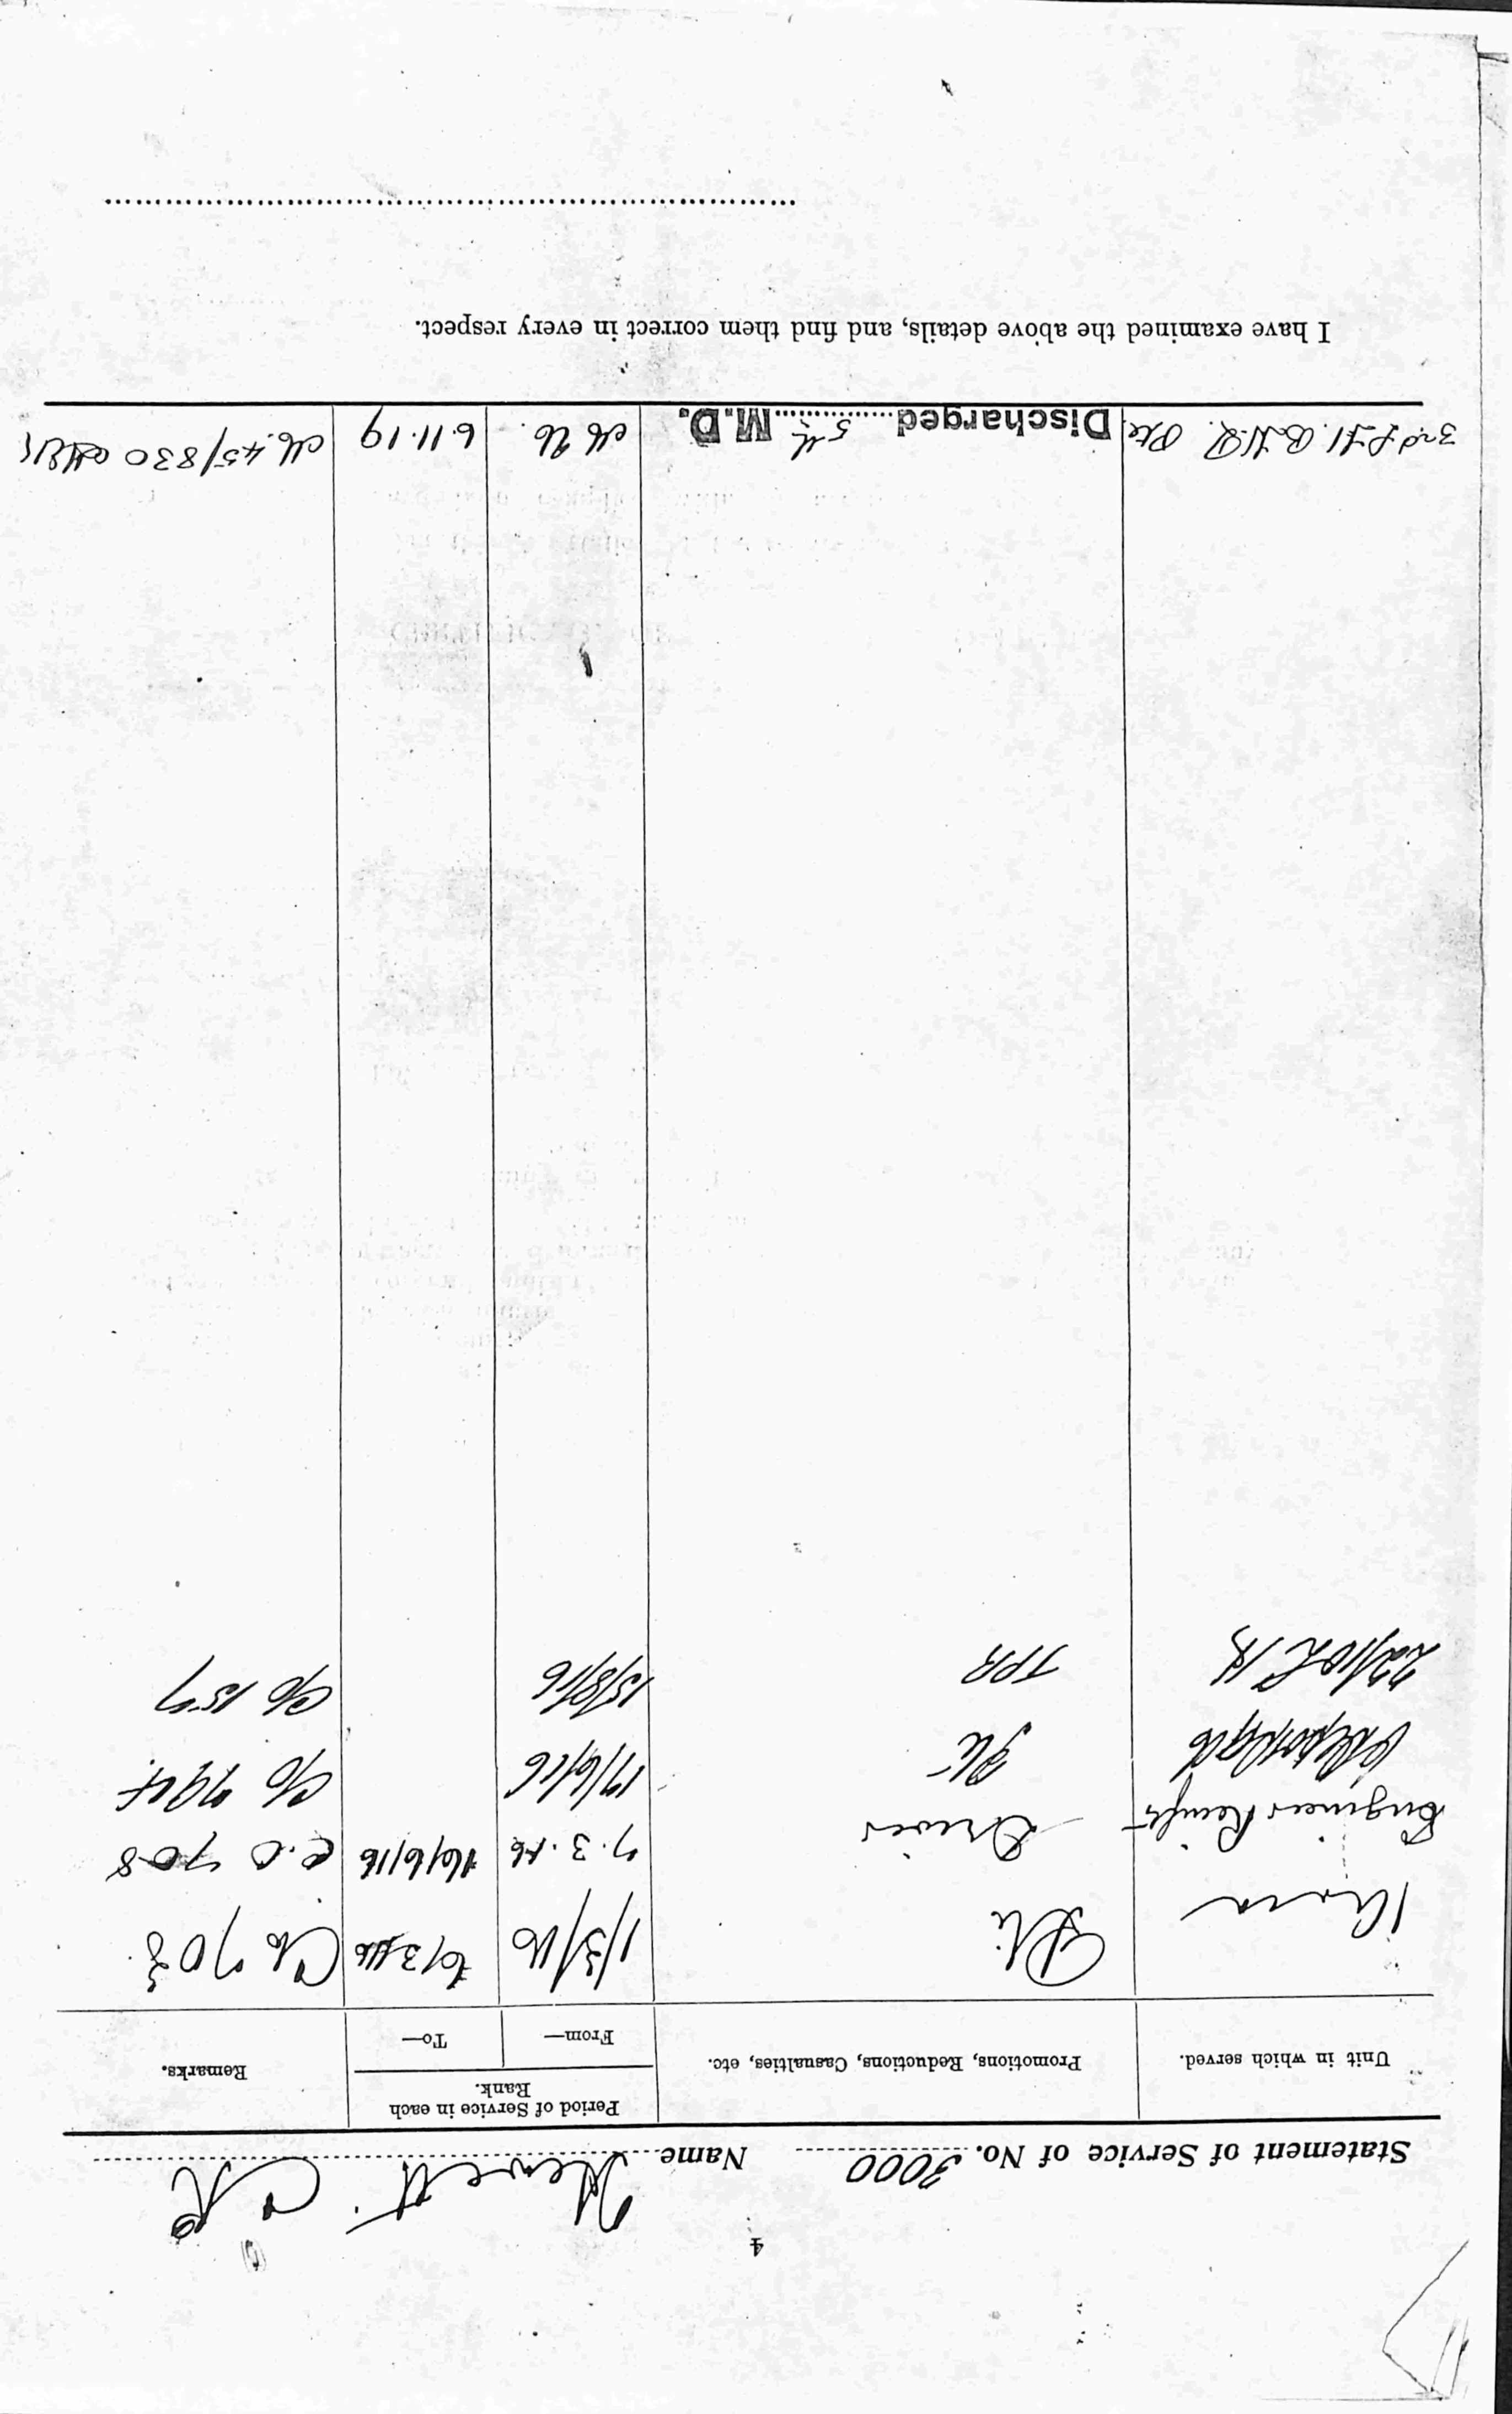 4
Statement of Service of No. 3000 Name Hewett. C R
Unit in which served. Promotions, Reductions, Casualties, etc. Period of Service in each Rank. Remarks.
From— To—
Pte 1/3/16 6/3/16 Co 708
Engineer Reinfts Driver 7.3.16 16/6/16 C.O 708
Pte 17/6/16 C/o 794
22/10 L H TPR 15/8/16 C/o 1557
3rd L.H. Pte. Discharged 5th M.D. 6.11.19 45/830
I have examined the above details, and find them correct in every respect.